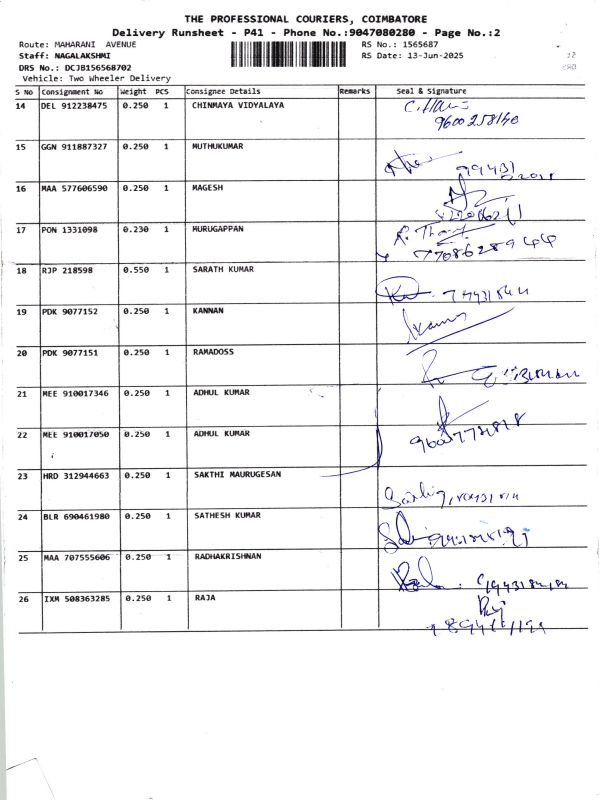 THE PROFESSIONAL COURIERS, COIMBATORE
Delivery Runsheet - P41 - Phone No.:9047080280 - Page No.:2
Route: MAHARANI AVENUE RS No.: 1565687
Staff: NAGALAKSHMI RS Date: 13-Jun-2025
DRS No.: DCJB156568702
Vehicle: Two Wheeler Delivery
S No Consignment No Weight PCS Consignee Details Remarks Seal & Signature
14 DEL 912238475 0.250 1 CHINMAYA VIDYALAYA
9600258140
15 GGN 911887327 0.250 1 MUTHUKUMAR
16 MAA 577606590 0.250 1 MAGESH
17 PON 1331098 0.230 1 MURUGAPPAN
7708628944
18 RJP 218598 0.550 1 SARATH KUMAR
19 PDK 9077152 0.250 1 KANNAN
20 PDK 9077151 0.250 1 RAMADOSS
21 MEE 910017346 0.250 1 ADHUL KUMAR
22 MEE 910017050 0.250 1 ADHUL KUMAR
23 HRD 312944663 0.250 1 SAKTHI MAURUGESAN
24 BLR 690461980 0.250 1 SATHESH KUMAR
25 MAA 707555606 0.250 1 RADHAKRISHNAN
26 IXM 508363285 0.250 1 RAJA